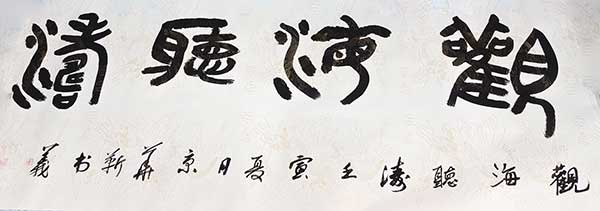 觀海聽濤
觀海聽濤壬寅夏月京華靳书義